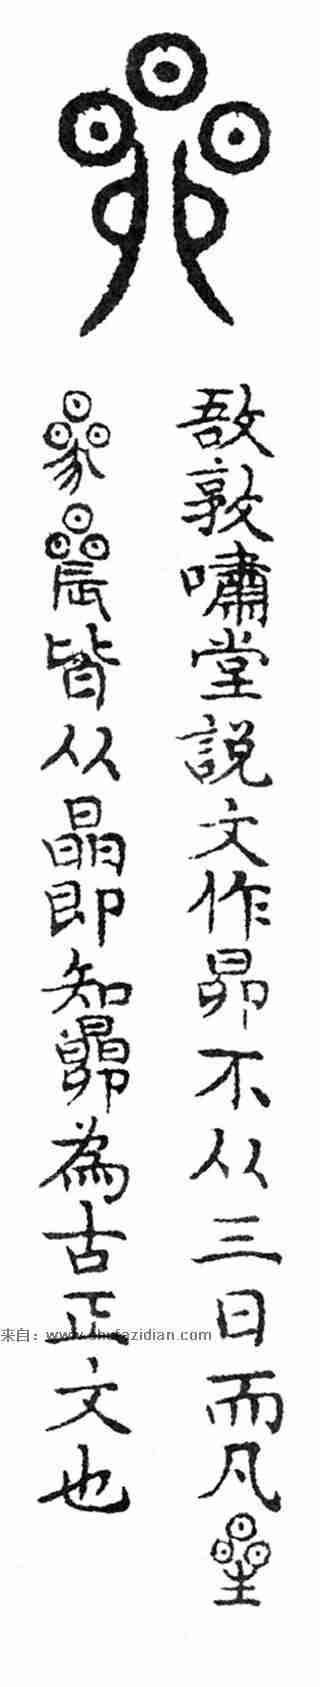 敔敦嘯堂說文作昴不从三日而凡曐
曑曟皆从晶即知為古正文也
来自：www.shufazidian.com